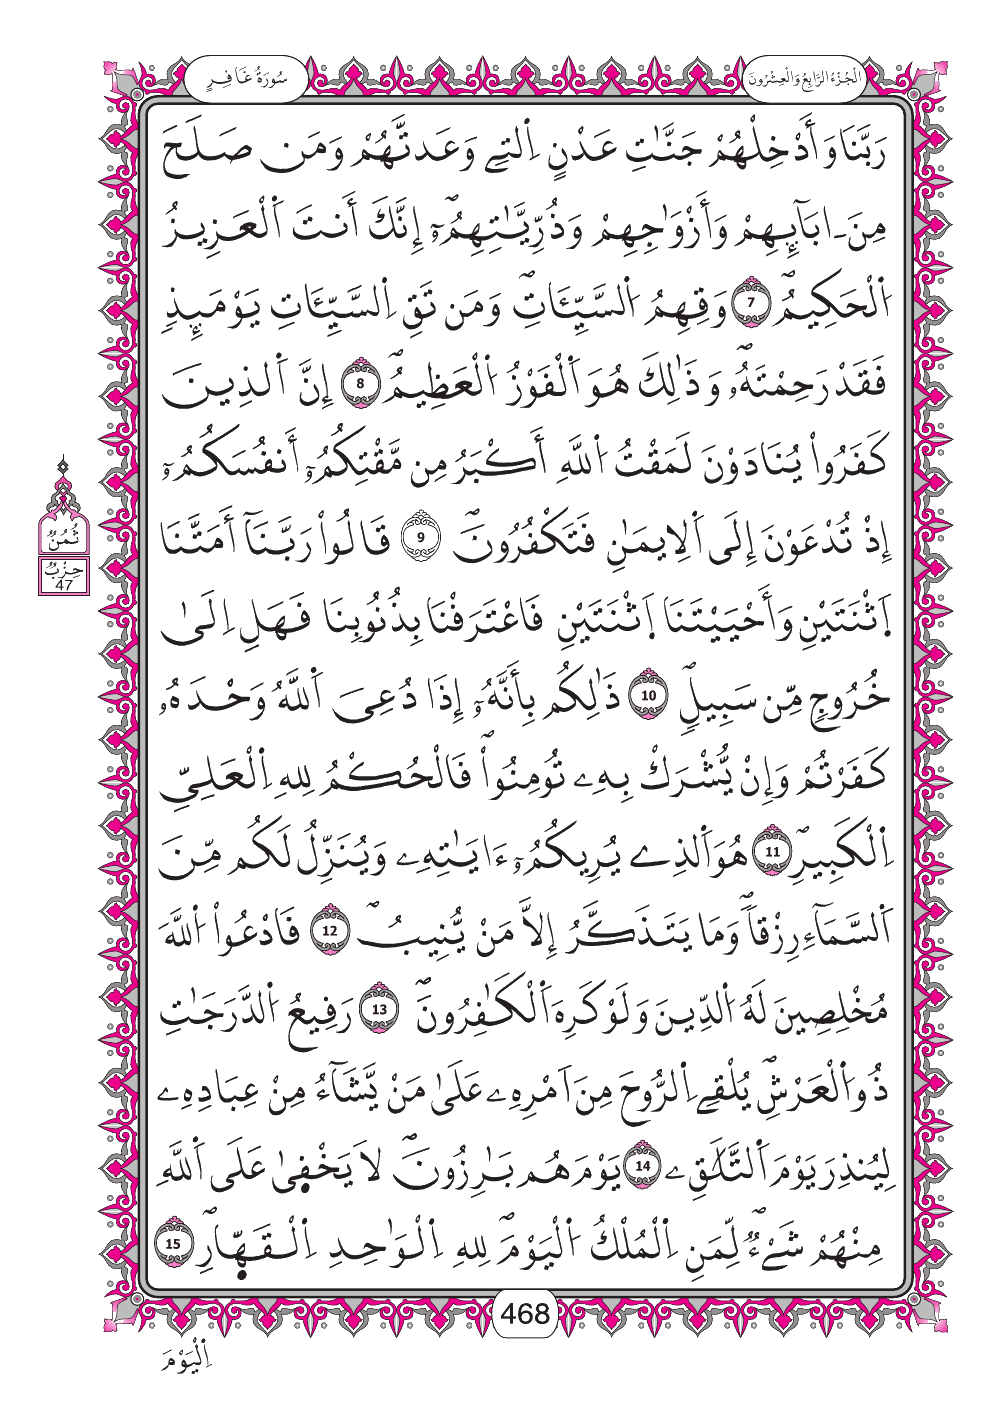 الْجُزْءُ الرَّابِعُ وَالْعِشْرُونَ
سُورَةُ غَافِرٍ
رَبَّنَا وَأَدْخِلْهُمْ جَنَّٰتِ عَدْنٍ اِ۬لتِے وَعَدتَّهُمْ وَمَن صَلَحَ
مِنَ ـ ابَآئِهِمْ وَأَزْوَٰجِهِمْ وَذُرِّيَّٰتِهِمُۥٓۖ إِنَّكَ أَنتَ اَ۬لْعَزِيزُ
اُ۬لْحَكِيمُۖ 7 وَقِهِمُ اُ۬لسَّيِّـَٔاتِۖ وَمَن تَقِ اِ۬لسَّيِّـَٔاتِ يَوْمَئِذٖ
فَقَدْ رَحِمْتَهُۥۖ وَذَٰلِكَ هُوَ اَ۬لْفَوْزُ اُ۬لْعَظِيمُۖ 8 إِنَّ اَ۬لذِينَ
كَفَرُواْ يُنَادَوْنَ لَمَقْتُ اُ۬للَّهِ أَكْبَرُ مِن مَّقْتِكُمُۥٓ أَنفُسَكُمُۥٓ
إِذْ تُدْعَوْنَ إِلَى اَ۬لِايمَٰنِ فَتَكْفُرُونَۖ 9 قَالُواْ رَبَّنَآ أَمَتَّنَا
ثُمُنُ
حِزْبُ
47
اَ۪ثْنَتَيْنِ وَأَحْيَيْتَنَا اَ۪ثْنَتَيْنِ فَاعْتَرَفْنَا بِذُنُوبِنَا فَهَلِ اِلَىٰ
خُرُوجٖ مِّن سَبِيلٖۖ 10 ذَٰلِكُم بِأَنَّهُۥٓ إِذَا دُعِىَ اَ۬للَّهُ وَحْدَهُۥ
كَفَرْتُمْ وَإِنْ يُّشْرَكْ بِهِۦ تُومِنُواْۖ فَالْحُكْمُ لِلهِ اِ۬لْعَلِيِّ
اِ۬لْكَبِيرِۖ 11 هُوَ اَ۬لذِے يُرِيكُمُۥٓ ءَايَٰتِهِۦ وَيُنَزِّلُ لَكُم مِّنَ
اَ۬لسَّمَآءِ رِزْقاٗۖ وَمَا يَتَذَكَّرُ إِلَّا مَنْ يُّنِيبُۖ 12 فَادْعُواْ اُ۬للَّهَ
مُخْلِصِينَ لَهُ اُ۬لدِّينَ وَلَوْ كَرِهَ اَ۬لْكَٰفِرُونَۖ 13 رَفِيعُ اُ۬لدَّرَجَٰتِ
ذُو اُ۬لْعَرْشِۖ يُلْقِے اِ۬لرُّوحَ مِنَ اَمْرِهِۦ عَلَىٰ مَنْ يَّشَآءُ مِنْ عِبَادِهِۦ
لِيُنذِرَ يَوْمَ اَ۬لتَّلَٰقِۦ 14 يَوْمَ هُم بَٰرِزُونَۖ لَا يَخْفَىٰ عَلَى اَ۬للَّهِ
مِنْهُمْ شَےْءٞۖ لِّمَنِ اِ۬لْمُلْكُ اُ۬لْيَوْمَۖ لِلهِ اِ۬لْوَٰحِدِ اِ۬لْقَهّ۪ارِۖ 15
468
اِ۬لْيَوْمَ